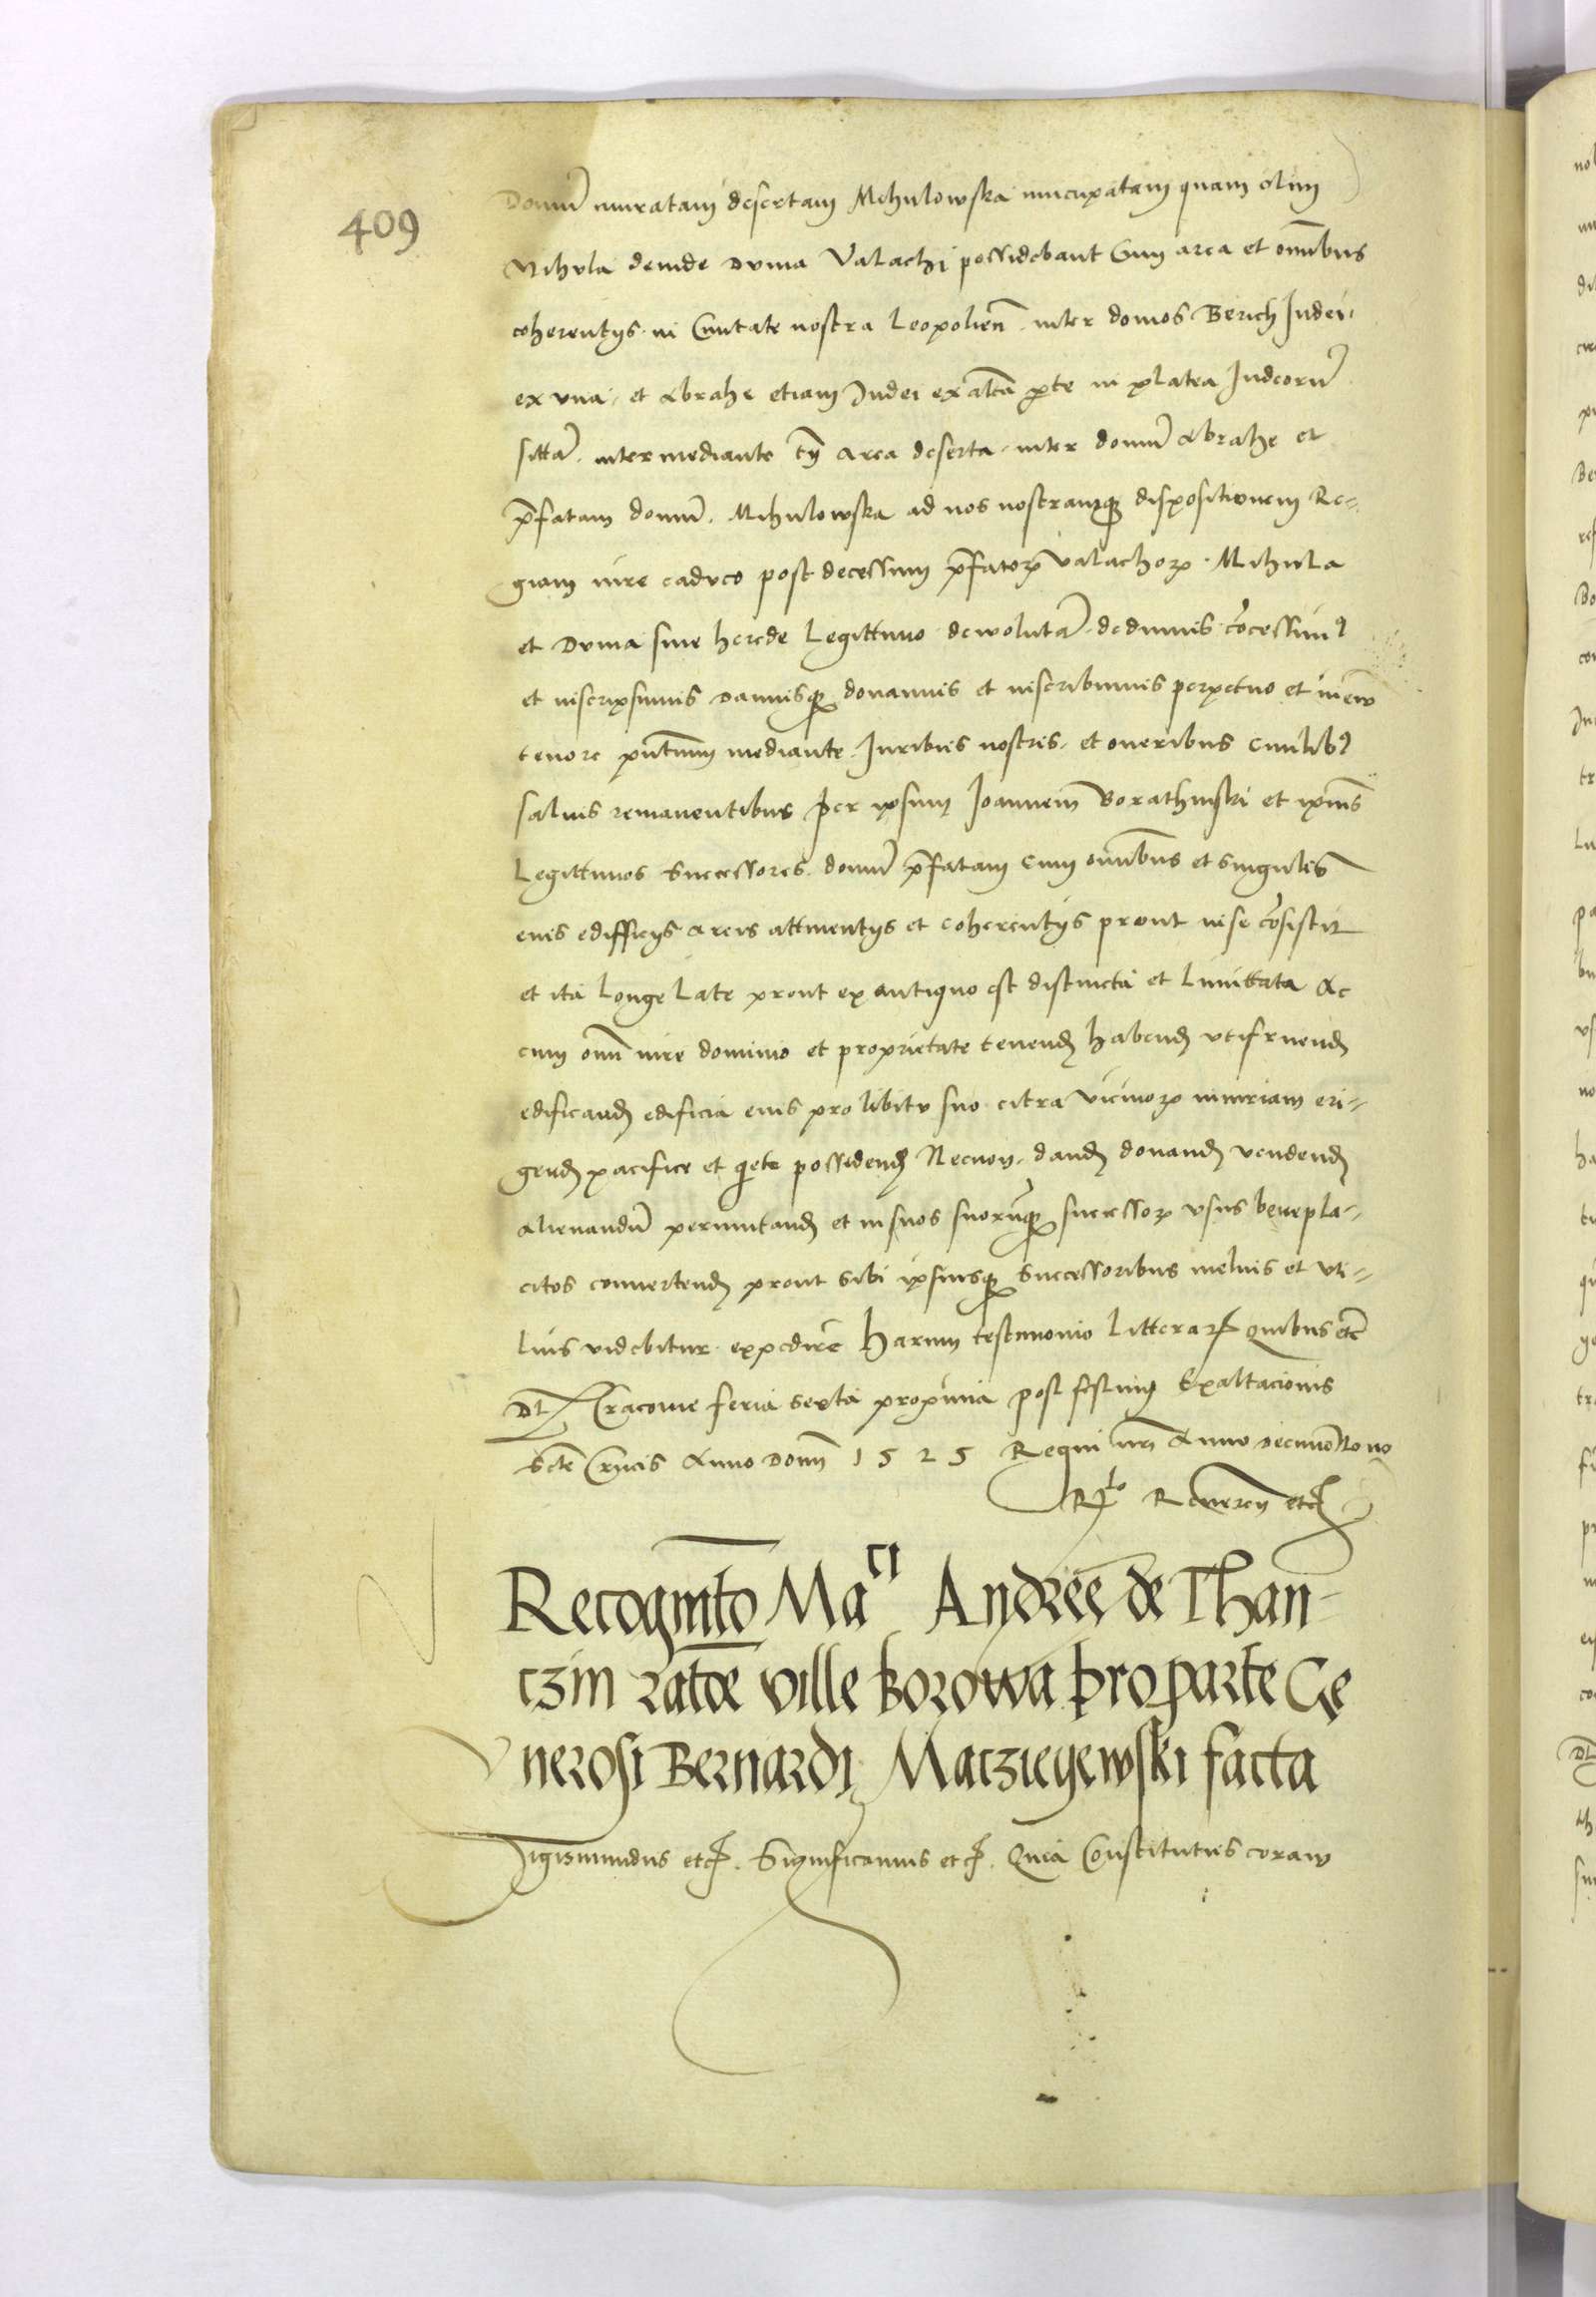 409
Domũ muratam desertam Mihulowska nuncupatam quam olim
Mihula deinde Duma Valachi possidebant Cum area et om̃ibus
coherentys in Ciuitate nostra Leopolien̄. inter domos Berich Iudei
ex vna. et Abrahe etiam Iudei ex altera p̱te in platea Iudeorũ
sittã. intermediante tn̄ area deserta. inter domũ Abrahe et
p̄fatam domũ. Mihulowska ad nos nostramqꝫ dispositionem Re-
giam iure caduco post decessum p̄fatoꝝ valachoꝝ. Mihula
et Duma sine herede Legittimo dewolutã. dedimus cõcessimꝰ
et inscripsimus damusqꝫ donamus et inscribimus perpetuo et in ewm
tenore pn̄tium mediante. Iuribus nostris. et oneribus Ciuilibꝰ
saluis remanentibus Per ipsum Ioannem Borathinski et ipsius
Legittimos Successores. domũ p̄fatam cum om̃ibus et singulis
euis edifficys areis attinentys et coherentys prout in se cõsistit
et ita Longe Late prout ex antiquo est distincta et Limittata ac
cum omī iure dominio et proprietate tenend̄ habend̄ vtifruend̄
edificand̄ edificia eius pro libitu suo citra vicinoꝝ iniuriam eri-
gend̄ pacifice et q̇ete possidend̄ Necnon. dand̄ donand̄ vendend̄
alienandũ permutand̄ et in suos suorũqꝫ successoꝝ vsus benepla-
citos conuertend̄ prout sibi ipsiusqꝫ Successoribus melius et vti-
lius videbitur expedire Harum testimonio Litteraꝝ quibus etc̄
Dt̄ Cracouie feria sexta proxima post festum Exaltacionis
Scte Crucis Anno Domī 1525 Regni nr̄i Anno decimo Nono
R̄lo Reueren̄ etc̄
Recognitō Maci Andree de Than-
czin ratōe ville Borowa pro parte Ge
nerosi Bernardi Macziegewski facta
Sigismundus etc̄. Significamus etc̄. Quia Constitutus coram